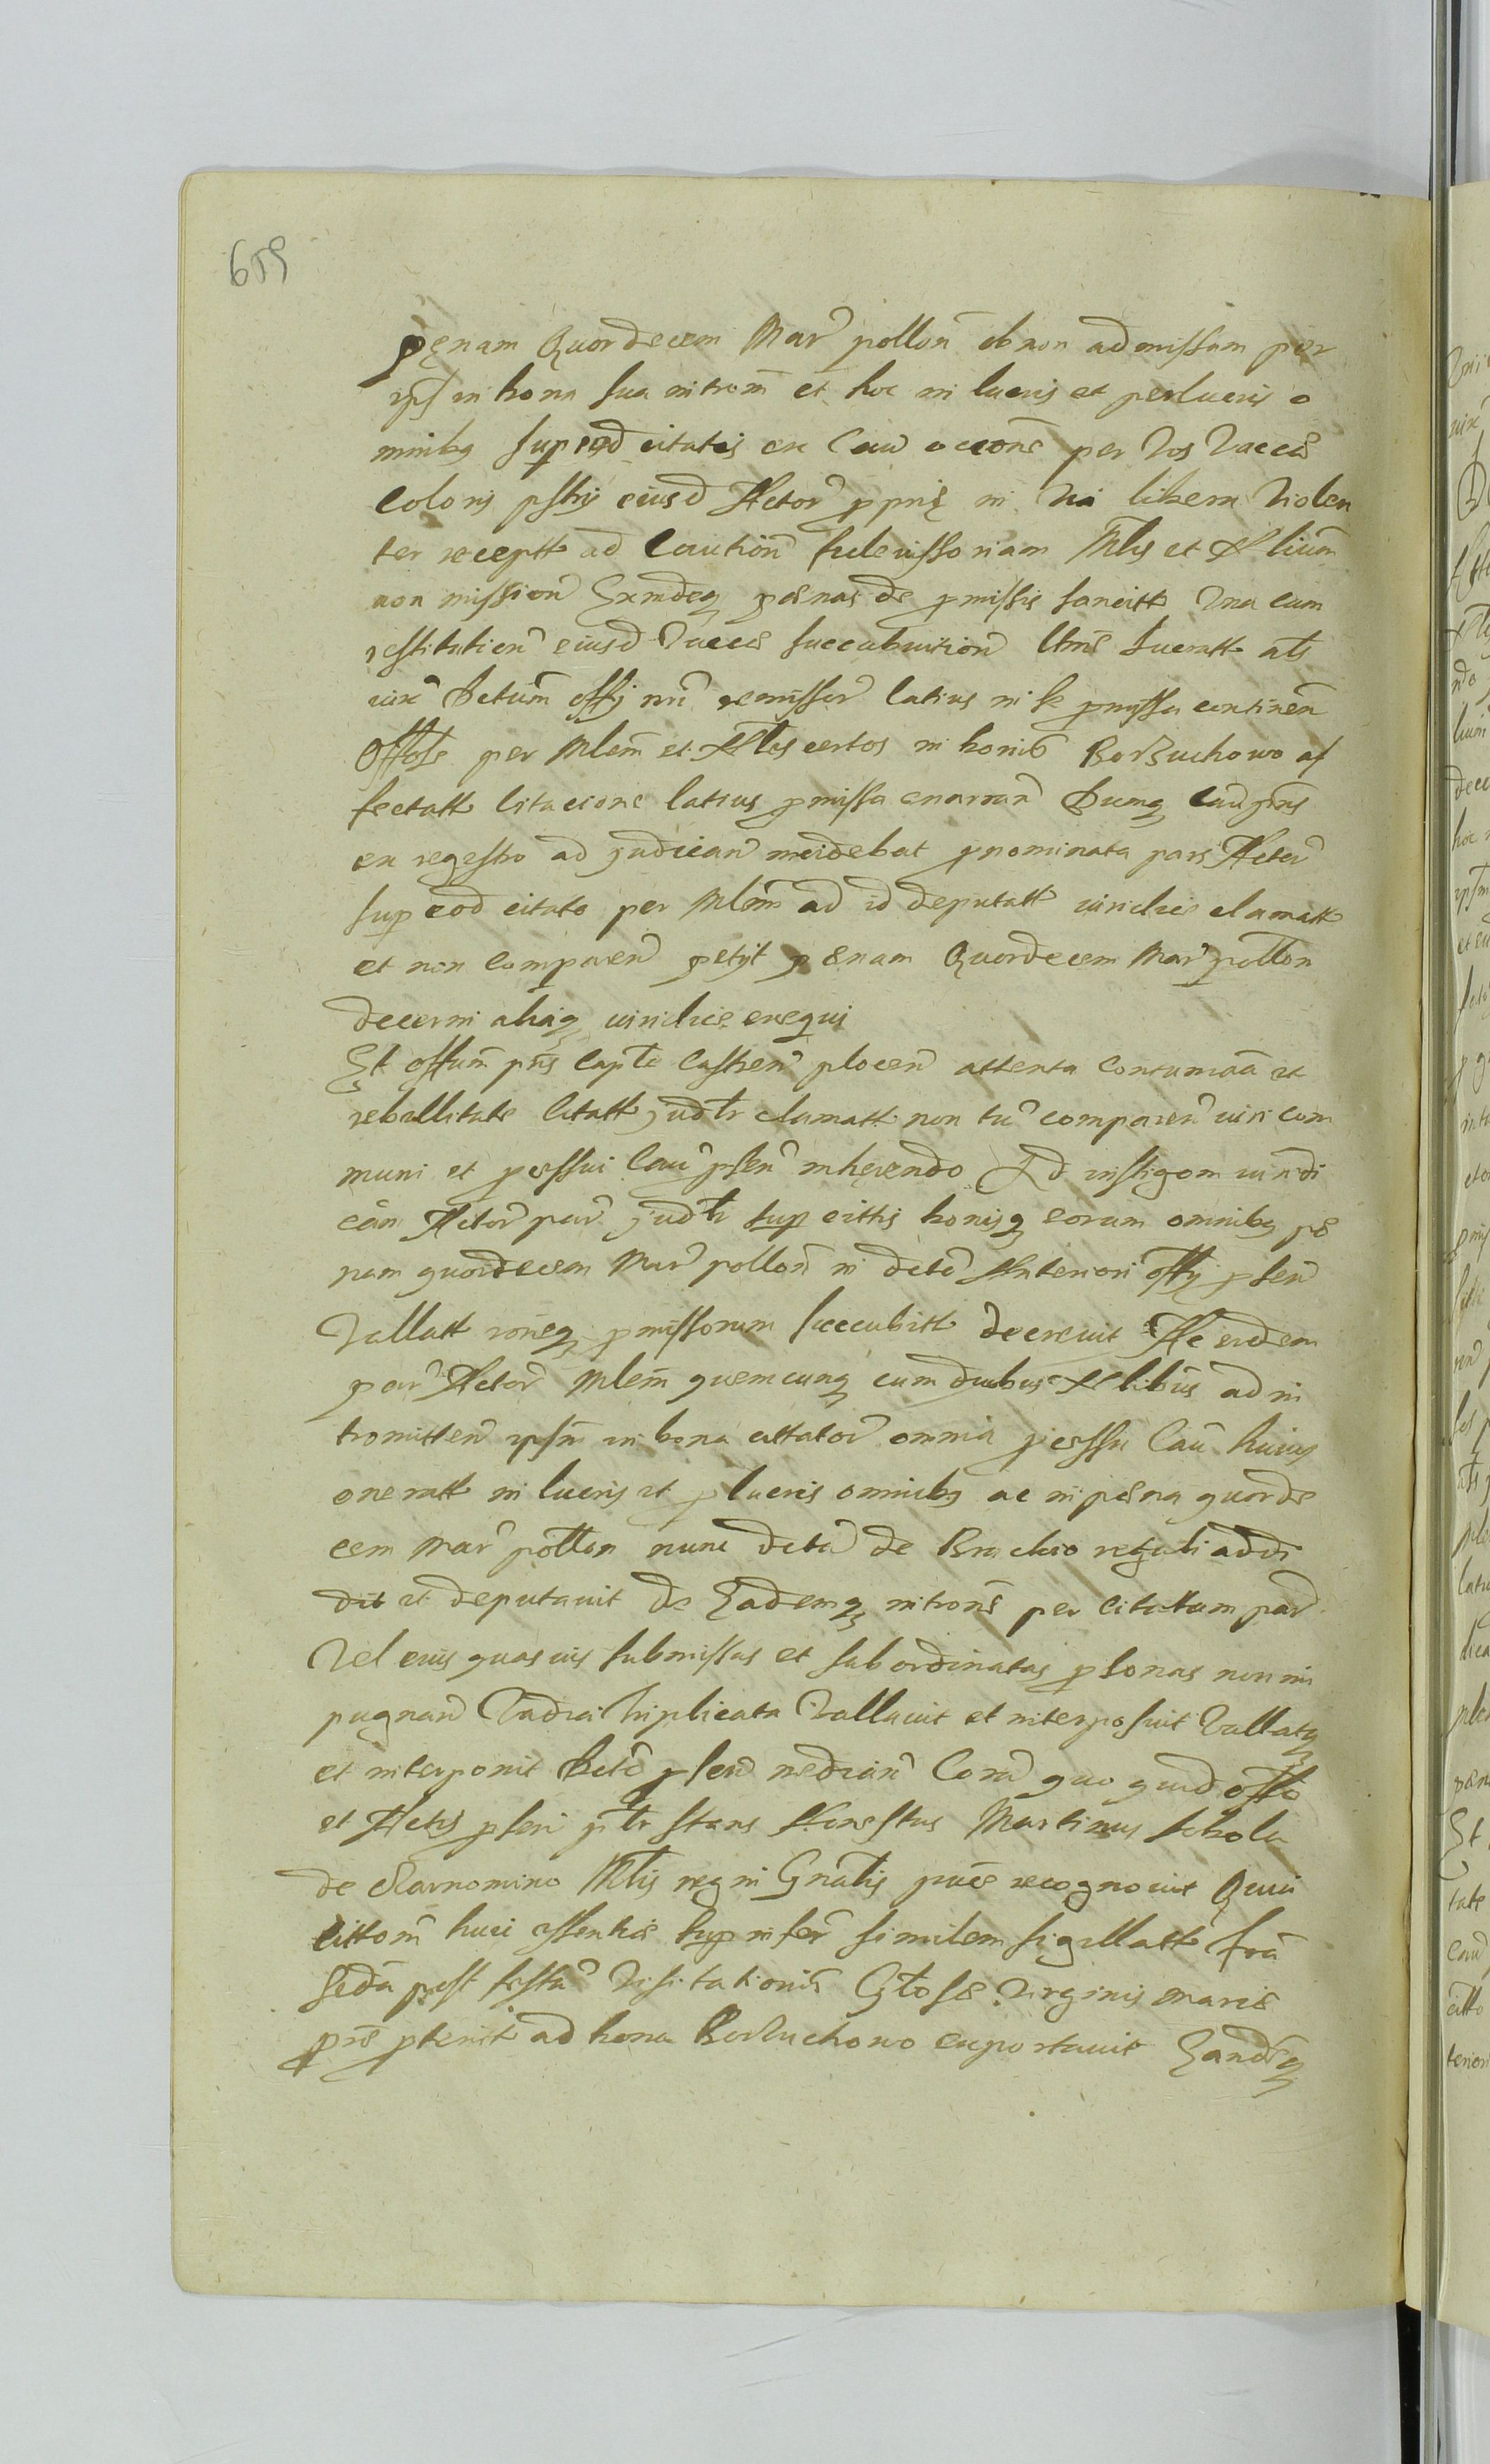 659
pęnam Quordecem Mar pollon ob non admissam per
ips in bona sua introm et hoc in lucris et perlucris o
mnibq sup eod citatis ex Cau occone per Vos Vaccae
Coloni eiusd Actor pprię in via libera violen
ter receptt ad Caution fideiussoriam Mlis et Nlium
non mission Exindeq pœnas de pmissis sancitt Vna cum
restitution eiusd Vaccae succubuition lucratt als
iux Detum offy nri remissor latius in se pmissa continen
Offose per Mlem et Nles certos in bonis Borzuchowo af
fectatt Citacione latius pmissa enarran Dumq Cau pns
ex regestro ad judican incidebat pnominata pars Actor
sup eod citato per Mlem ad id deputatt iuridice clamatt
et non comparen petyt pœnam Quordecem Mar pollon
decerni aliaq iuridice exequi
Et offium pns Capte Castren plocen attenta Contumatia et
rebellitate Citatt judtr clamatt non tn comparen iuri com
muni et pcessui Cau psen inherendo Ad instigom iuridi
cam Actor par judtr sup cittis bonisq eorum omnibq pœ
nam quordecem Mar pollon in deto Anteriori offy psen
Vallatt roneq pmissorum succubitt decrevit Ac eidem
par Actor Mlem quemcunq cum duobus Nlibus ad in
tromitten ipsm in bona cittator omnia pcessu Cau huius
oneratt in lucris et plucris omnibq ac in pœna quorde
cem Mar pollon nunc deta de Brachio regali addi
dit et deputavit de Eademq introne per citatum par
Vel eius quasvis submissas et subordinatas psonas non im
pugnan Vadia triplicata Vallavit et interposuit Vallatq
et interponit Deto psen median Coram quo quid offo
et Actis psen ptr stans Honestus Martinus Schola
de Mlis regni Gnalis pnce recognovit Quia
cittom huic essentiae sup inser similem sigillatt fria
secda post festu Visitationis Gtosae Virginis Mariae
prę pterit ad bona Borzuchowo exportavit Eandeq